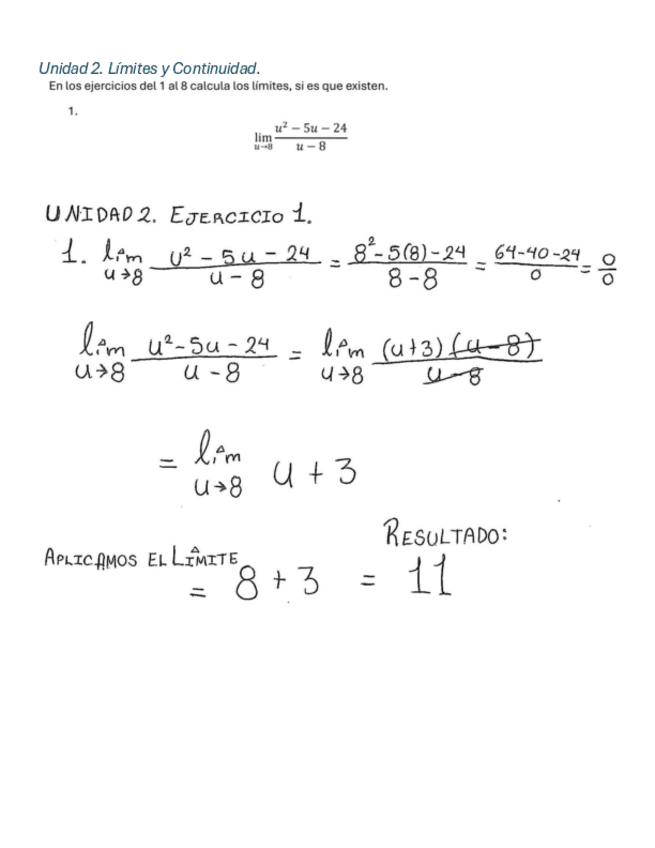 Unidad 2. Límites y Continuidad.
En los ejercicios del 1 al 8 calcula los límites, si es que existen.
1.
lim u→8 (u² − 5u − 24)/(u − 8)
UNIDAD 2. EJERCICIO 1.
1. lím u→8 (u² − 5u − 24)/(u − 8) = (8² − 5(8) − 24)/(8 − 8) = (64 − 40 − 24)/0 = 0/0
lím u→8 (u² − 5u − 24)/(u − 8) = lím u→8 (u+3)(u−8)/(u−8)
= lím u→8 u + 3
APLICAMOS EL LÍMITE
= 8 + 3 =
RESULTADO:
11